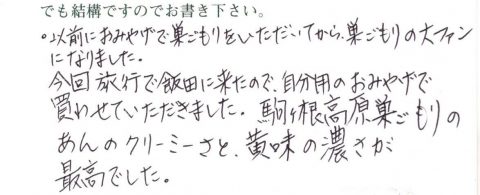 でも結構ですのでお書き下さい。
•以前におみやげで巣ごもりをいただいてから、巣ごもりの大ファン
になりました。
今回旅行で飯田に来たので、自分用のおみやげで
買わせていただきました。駒ヶ根高原巣ごもりの
あんのクリーミーさと、黄味の濃さが
最高でした。